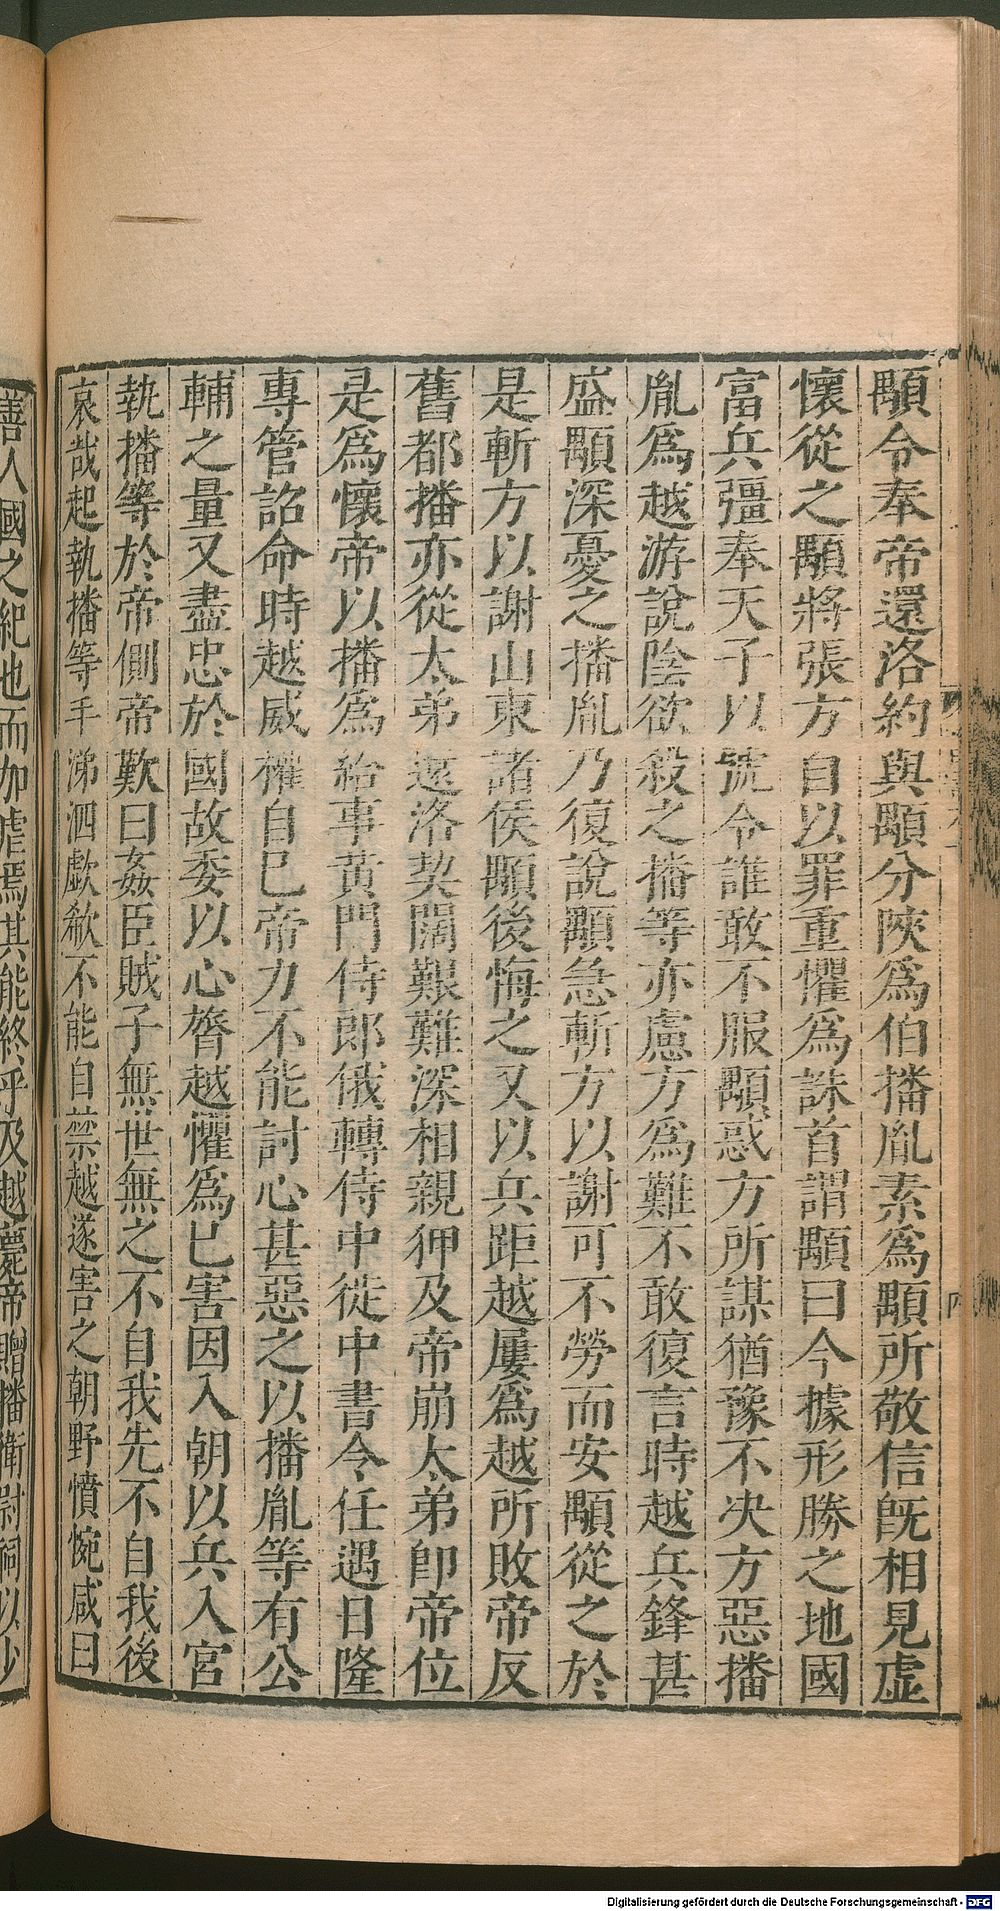 顒令奉帝還洛約與顒分陝爲伯播胤素爲顒所敬信旣相見虛
懷從之顒將張方自以罪重懼爲誅首謂顒曰今據形勝之地國
富兵彊奉天子以號令誰敢不服顒惑方所謀猶豫不决方惡播
胤爲越游說陰欲殺之播等亦慮方爲難不敢復言時越兵鋒甚
盛顒深憂之播胤乃復說顒急斬方以謝可不勞而安顒從之於
是斬方以謝山東諸侯顒後悔之又以兵距越屢爲越所敗帝反
舊都播亦從太弟還洛契闊艱難深相親狎及帝崩太弟卽帝位
是爲懷帝以播爲給事黃門侍郎俄轉侍中徙中書令任遇日隆
專管詔命時越威權自已帝力不能討心甚惡之以播胤等有公
輔之量又盡忠於國故委以心膂越懼爲已害因入朝以兵入宮
執播等於帝側帝歎曰姦臣賊子無世無之不自我先不自我後
哀哉起執播等手涕泗歔欷不能自禁越遂害之朝野憤惋咸曰
善人國之紀也而加虐焉其能終乎及越薨帝贈播衞尉祠以少
Digitalisierung gefördert durch die Deutsche Forschungsgemeinschaft - DFG